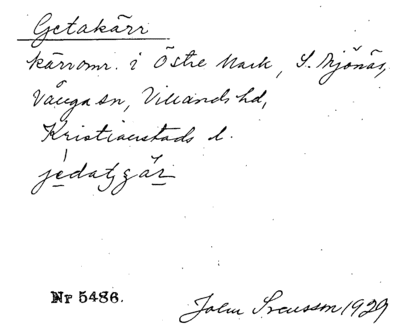 Getakärr
kärromr. i Östre Mark, S. Mjönäs,
Vånga sn, Villands hd,
Kristianstads l.
Nr 5486.
John Svensson 1929